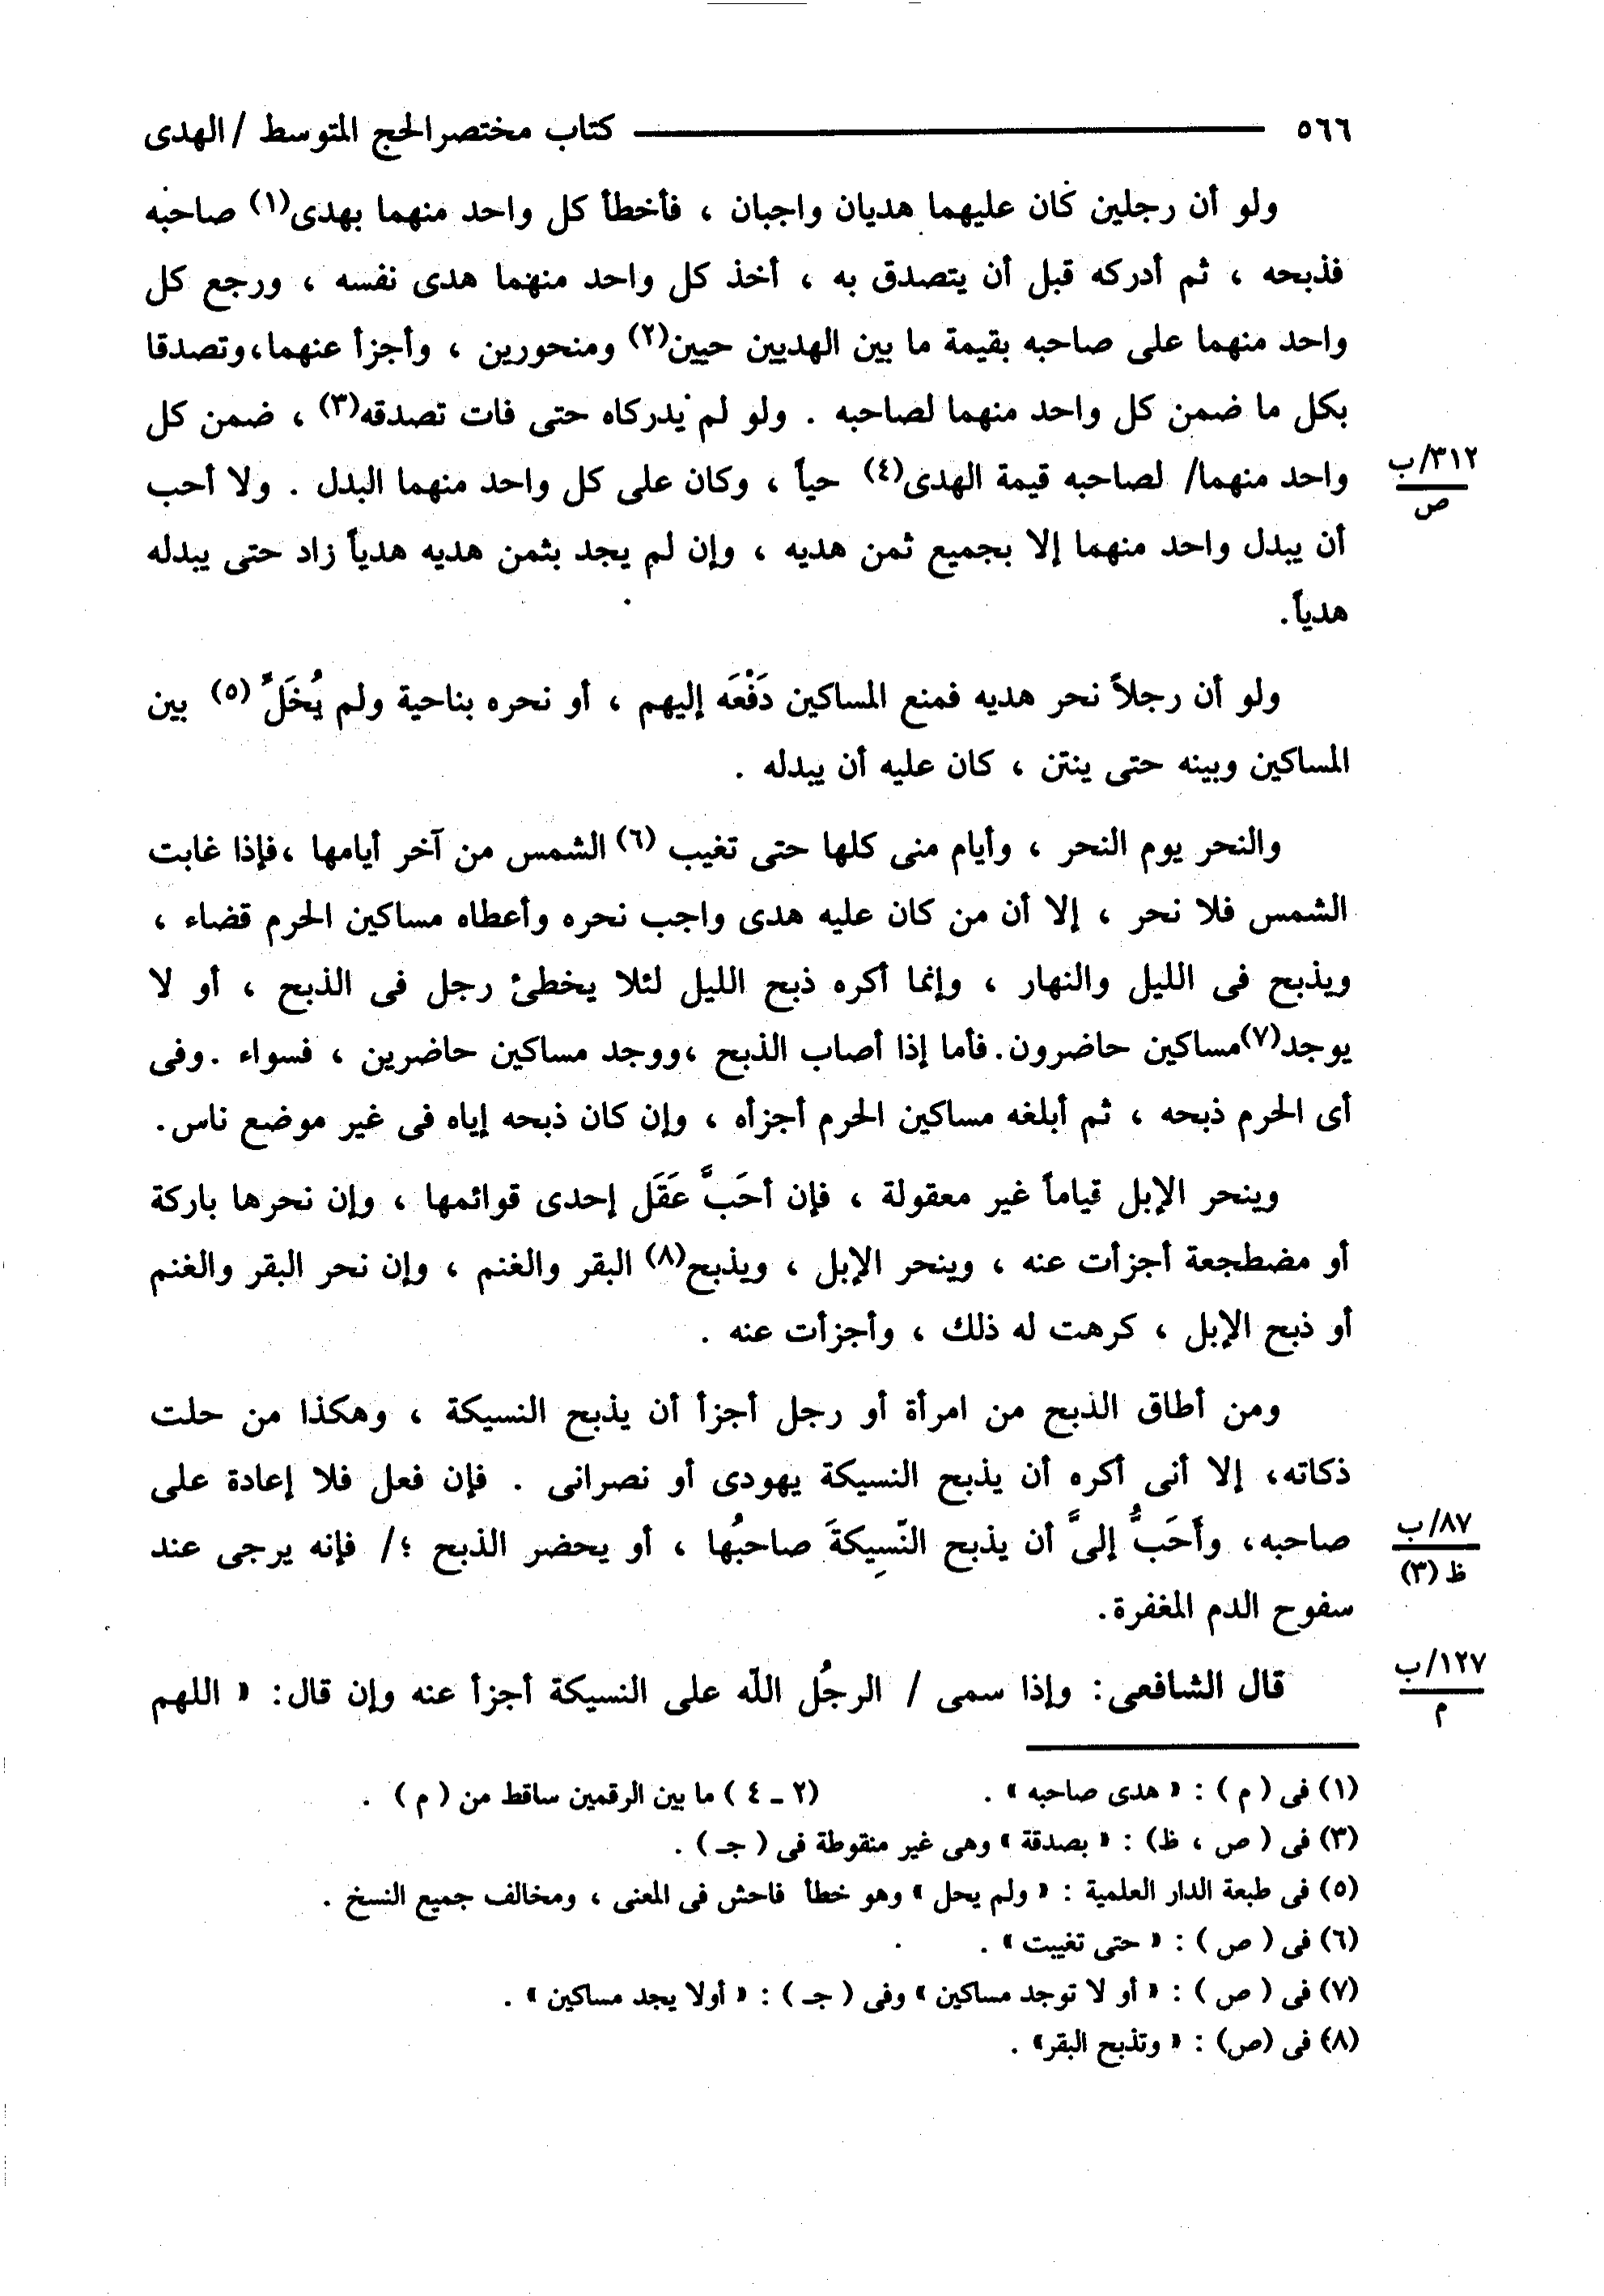 ٥٦٦ ــــــــــــ كتاب مختصر الحج المتوسط / الهدى
ولو أن رجلين كان عليهما هديان واجبان ، فأخطأ كل واحد منهما بهدى(١) صاحبه
فذبحه ، ثم أدركه قبل أن يتصدق به ، أخذ كل واحد منهما هدى نفسه ، ورجع كل
واحد منهما على صاحبه بقيمة ما بين الهديين حيين(٢) ومنحورين ، وأجزأ عنهما، وتصدقا
بكل ما ضمن كل واحد منهما لصاحبه . ولو لم يدركاه حتى فات تصدقه(٣) ، ضمن كل
واحد منهما/ لصاحبه قيمة الهدى(٤) حياً ، وكان على كل واحد منهما البدل . ولا أحب
٣١٢/ب
ص
أن يبدل واحد منهما إلا بجميع ثمن هديه ، وإن لم يجد بثمن هديه هدياً زاد حتى يبدله
هدياً.
ولو أن رجلاً نحر هديه فمنع المساكين دَفْعَه إليهم ، أو نحره بناحية ولم يُخَلِّ (٥) بين
المساكين وبينه حتى ينتن ، كان عليه أن يبدله .
والنحر يوم النحر ، وأيام منى كلها حتى تغيب (٦) الشمس من آخر أيامها ،فإذا غابت
الشمس فلا نحر ، إلا أن من كان عليه هدى واجب نحره وأعطاه مساكين الحرم قضاء ،
ويذبح فى الليل والنهار ، وإنما أكره ذبح الليل لئلا يخطئ رجل فى الذبح ، أو لا
يوجد(٧)مساكين حاضرون. فأما إذا أصاب الذبح ،ووجد مساكين حاضرين ، فسواء .وفى
أى الحرم ذبحه ، ثم أبلغه مساكين الحرم أجزأه ، وإن كان ذبحه إياه فى غير موضع ناس.
وينحر الإبل قياماً غير معقولة ، فإن أحَبَّ عَقَل إحدى قوائمها ، وإن نحرها باركة
أو مضطجعة أجزأت عنه ، وينحر الإبل ، ويذبح(٨) البقر والغنم ، وإن نحر البقر والغنم
أو ذبح الإبل ، كرهت له ذلك ، وأجزأت عنه .
ومن أطاق الذبح من امرأة أو رجل أجزأ أن يذبح النسيكة ، وهكذا من حلت
ذكاته، إلا أنى أكره أن يذبح النسيكة يهودى أو نصرانى . فإن فعل فلا إعادة على
صاحبه، وأَحَبُّ إلىَّ أن يذبح النّسِيكةَ صاحبُها ، أو يحضر الذبح ؛/ فإنه يرجى عند
٨٧/ب
ظ (٣)
سفوح الدم المغفرة.
قال الشافعى: وإذا سمى / الرجُل اللّه على النسيكة أجزأ عنه وإن قال: « اللهم
١٢٧/ب
م
(١) فى ( م ) : « هدى صاحبه » .
(٢ ـ ٤ ) ما بين الرقمين ساقط من ( م ) .
(٣) فى ( ص ، ظ) : « بصدقة » وهى غير منقوطة فى ( جـ ) .
(٥) فى طبعة الدار العلمية : « ولم يحل » وهو خطأ فاحش فى المعنى ، ومخالف جميع النسخ .
(٦) فى ( ص ) : « حتى تغيبت » .
(٧) فى ( ص ) : « أو لا توجد مساكين » وفى ( جـ ) : « أولا يجد مساكين » .
(٨) فى (ص) : « وتذبح البقر» .